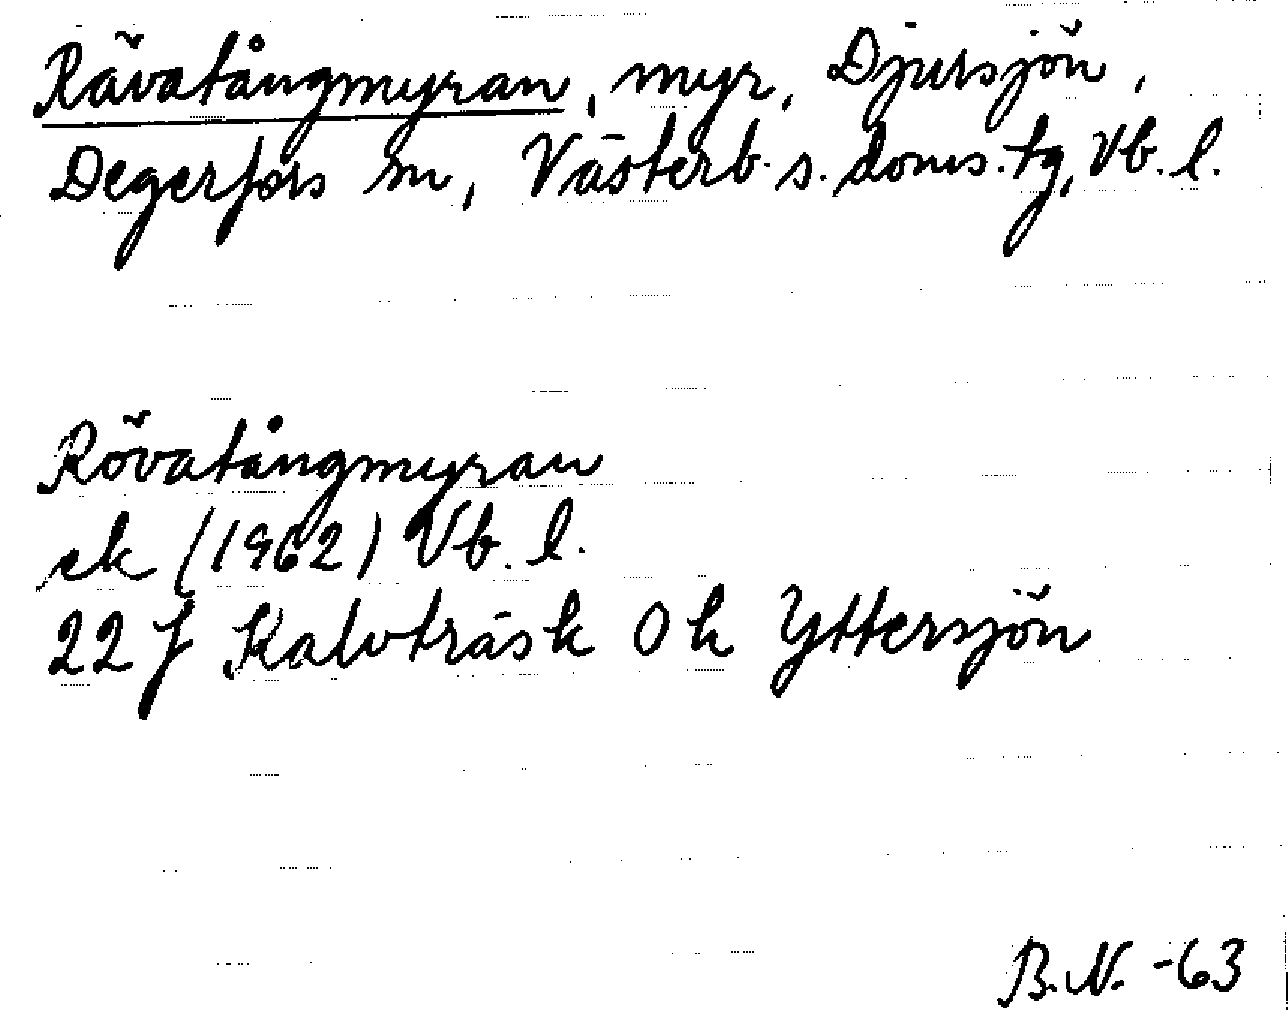 Rävatångmyran, myr, Djursjön,
Degerfors sn, Västerb. s. doms. tg, Vb. l.
Rövatångmyran
ek (1962) Vb. l.
22 J Kalvträsk 0 h Yttersjön
B.N. -63